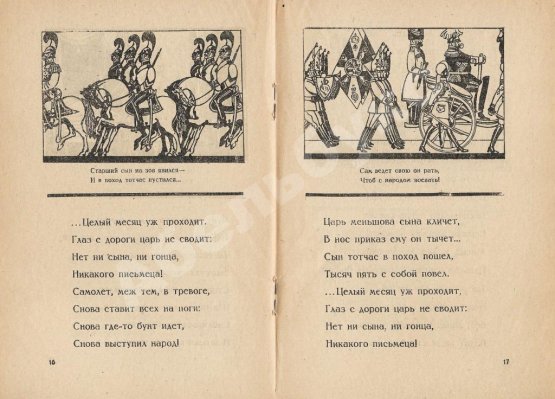 Старший сын на зов явился—
И в поход тотчас пустился...
...Целый месяц уж проходит.
Глаз с дороги царь не сводит:
Нет ни сына, ни гонца,
Никакого письмеца!
Самолет, меж тем, в тревоге,
Снова ставит всех на ноги:
Снова где-то бунт идет,
Снова выступил народ!
16
Сам ведет свою он рать,
Чтоб с народом воевать!
Царь меньшова сына кличет,
В нос приказ ему он тычет...
Сын тотчас в поход пошел,
Тысяч пять с собой повел.
...Целый месяц уж проходит,
Глаз с дороги царь не сводит:
Нет ни сына, ни гонца,
Никакого письмеца!
17